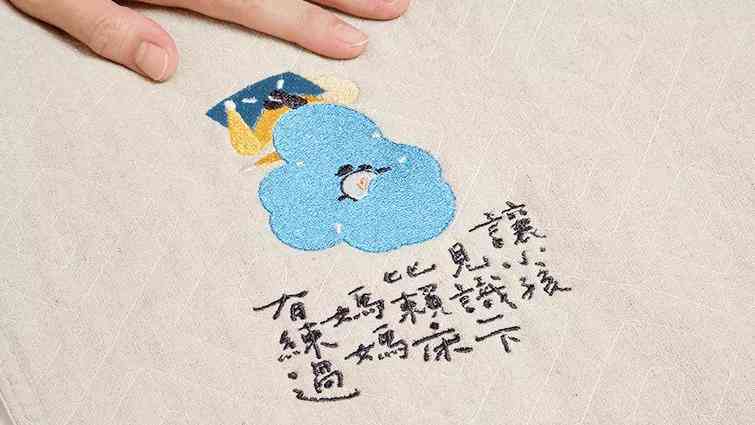 讓小孩
見識一下
比賴床
媽媽
有練過